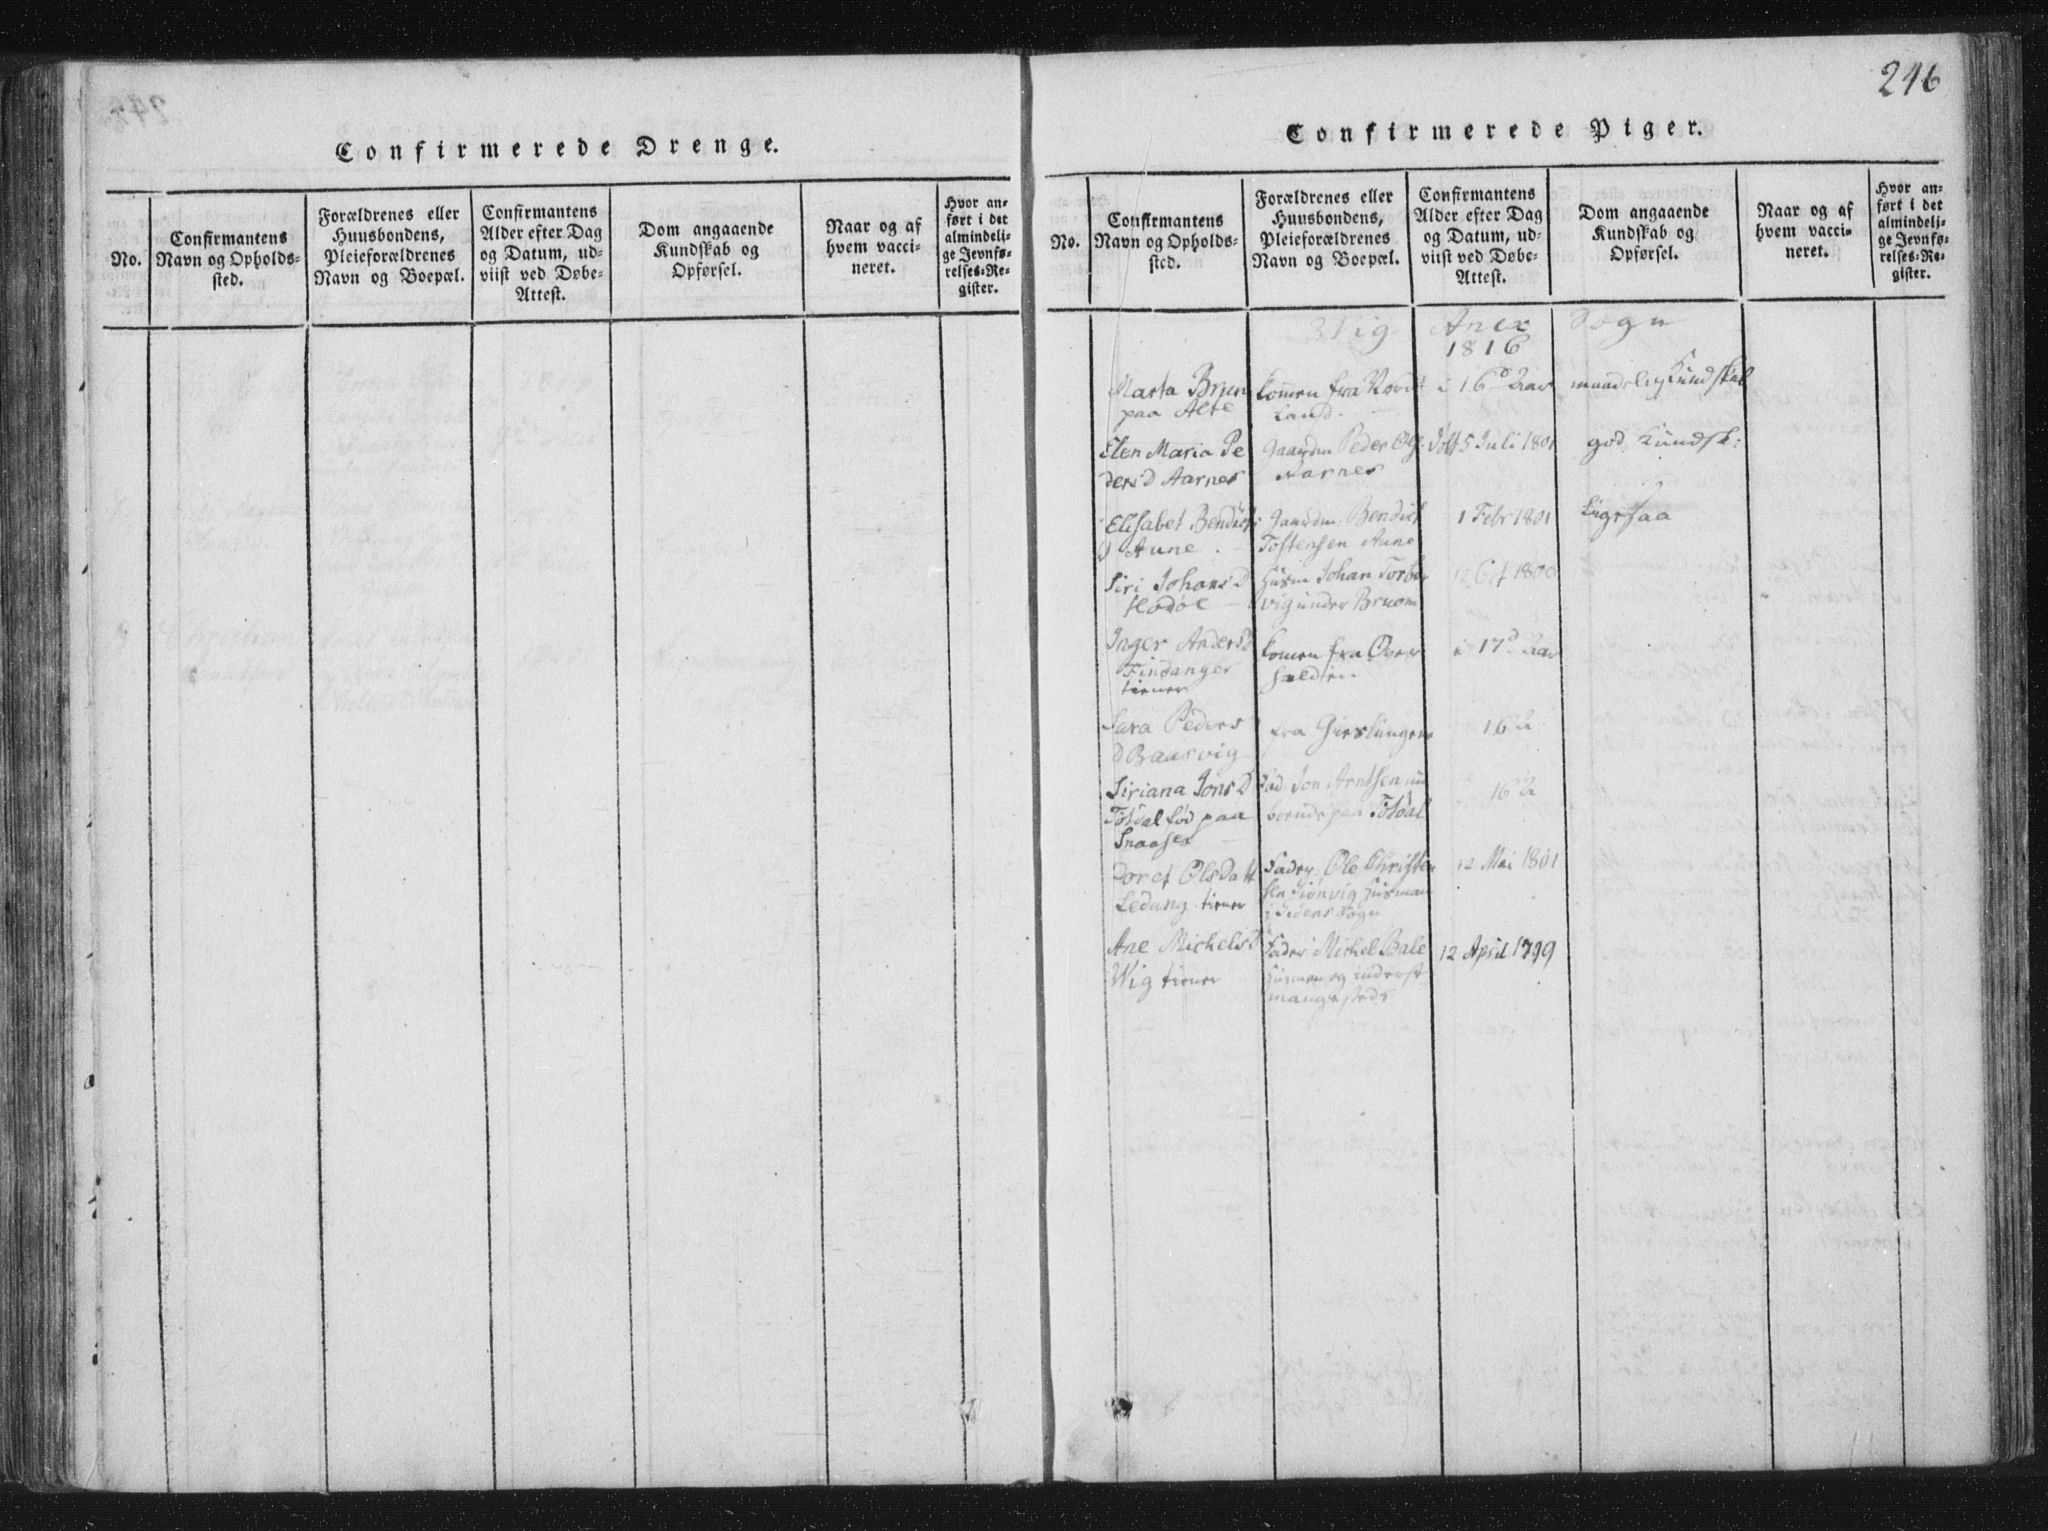 Confirmerede Drenge.
No.
Confirmantens
Navn og Opholds-
sted.
Forældrenes eller
Huusbondens,
Pleieforældrenes
Navn og Boepæl.
Confirmantens
Alder efter Dag
og Datum, ud-
viist ved Døbe-
Attest.
Dom angaaende
Kundskab og
Opførsel.
Naar og af
hvem vacci-
neret.
Hvor an-
ført i det
almindeli-
ge Jevnfø-
relses-Re-
gister.
246
Confirmerede Piger.
No.
Confirmantens
Navn og Opholds-
sted.
Forældrenes eller
Huusbondens,
Pleieforældrenes
Navn og Boepæl.
Confirmantens
Alder efter Dag
og Datum, ud-
viist ved Døbe-
Attest.
Dom angaaende
Kundskab og
Opførsel.
Naar og af
hvem vacci-
neret.
Hvor an-
ført i det
almindeli-
ge Jevnfø-
relses-Re-
gister.
Vig Anex Sogn
1816
Marta Brun
paa Alte
komen fra Nord
land
i 16d Aar
maadelig Kundskab
Elen Maria Pe
dersD Aarnes
Gaardm Peder Ols
Aarnes
5 Juli 1801
god Kundsk:
Elisabet Bendict
D Aune
Gaardm: Bendict
Tostensen Aune
1 Febr 1801
Ligesaa
Siri JohansD
Hødøl
Husm Johan Torber
vig under Bruom
12 Oct 1800
Inger AndersD
Findanger
tiener
komen fra Over
halden
i 17d Aar
Sara Peders
D Baasvig
fra Gieslingene
16 A
Siriana JonsD
Tosdal fød paa
Snaasen
Fad: Jon Arntsen nu
boende paa Tosdal
16 A
Doret Olsdatt
Ledang tiener
Fader: Ole Christen
sen Siønvig Husman
i Sidens Sogn
12 Mai 1801
Ane MichelsD
Wig tiener
Fader Mickel Bale
Husman og inderst
mangesteds
12 April 1799